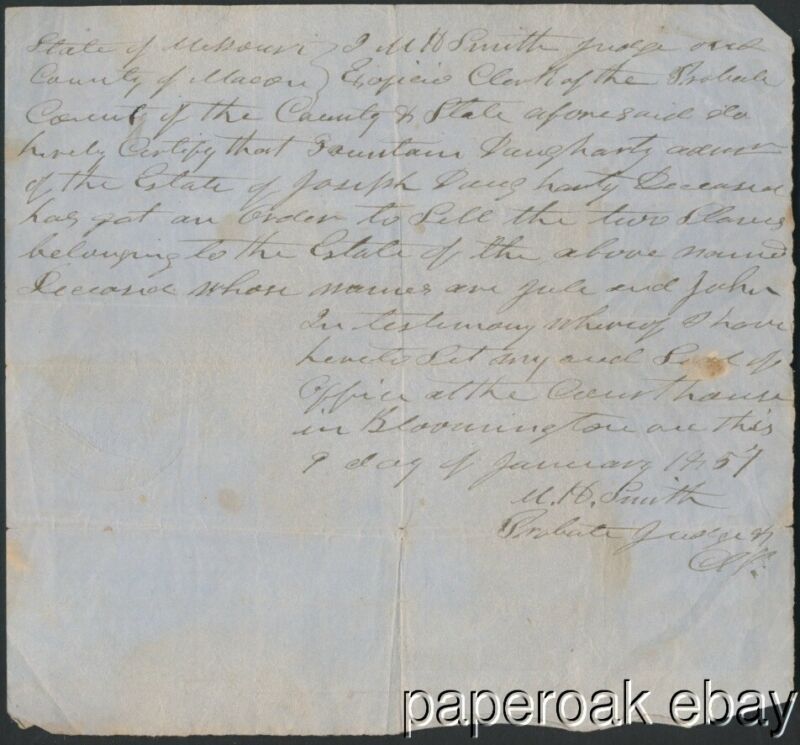 State of Missouri } I M H Smith Judge and
County of Macon } Exoficio Clerk of the Probate
County of the County & State aforesaid do
herely Certify that Fountain Daugharty admr
of the Estate of Joseph Daugharty Deceased
has got an order to Sell the two Slaves
belonging to the Estate of the above named
Deceased whose names are Jule and John
In testimony whereof I have
hereto Set my and Seal of
Office at the Courthouse
in Bloomington on this
9 day of January 1857
M. H. Smith
Probate Judge &
paperoak ebay